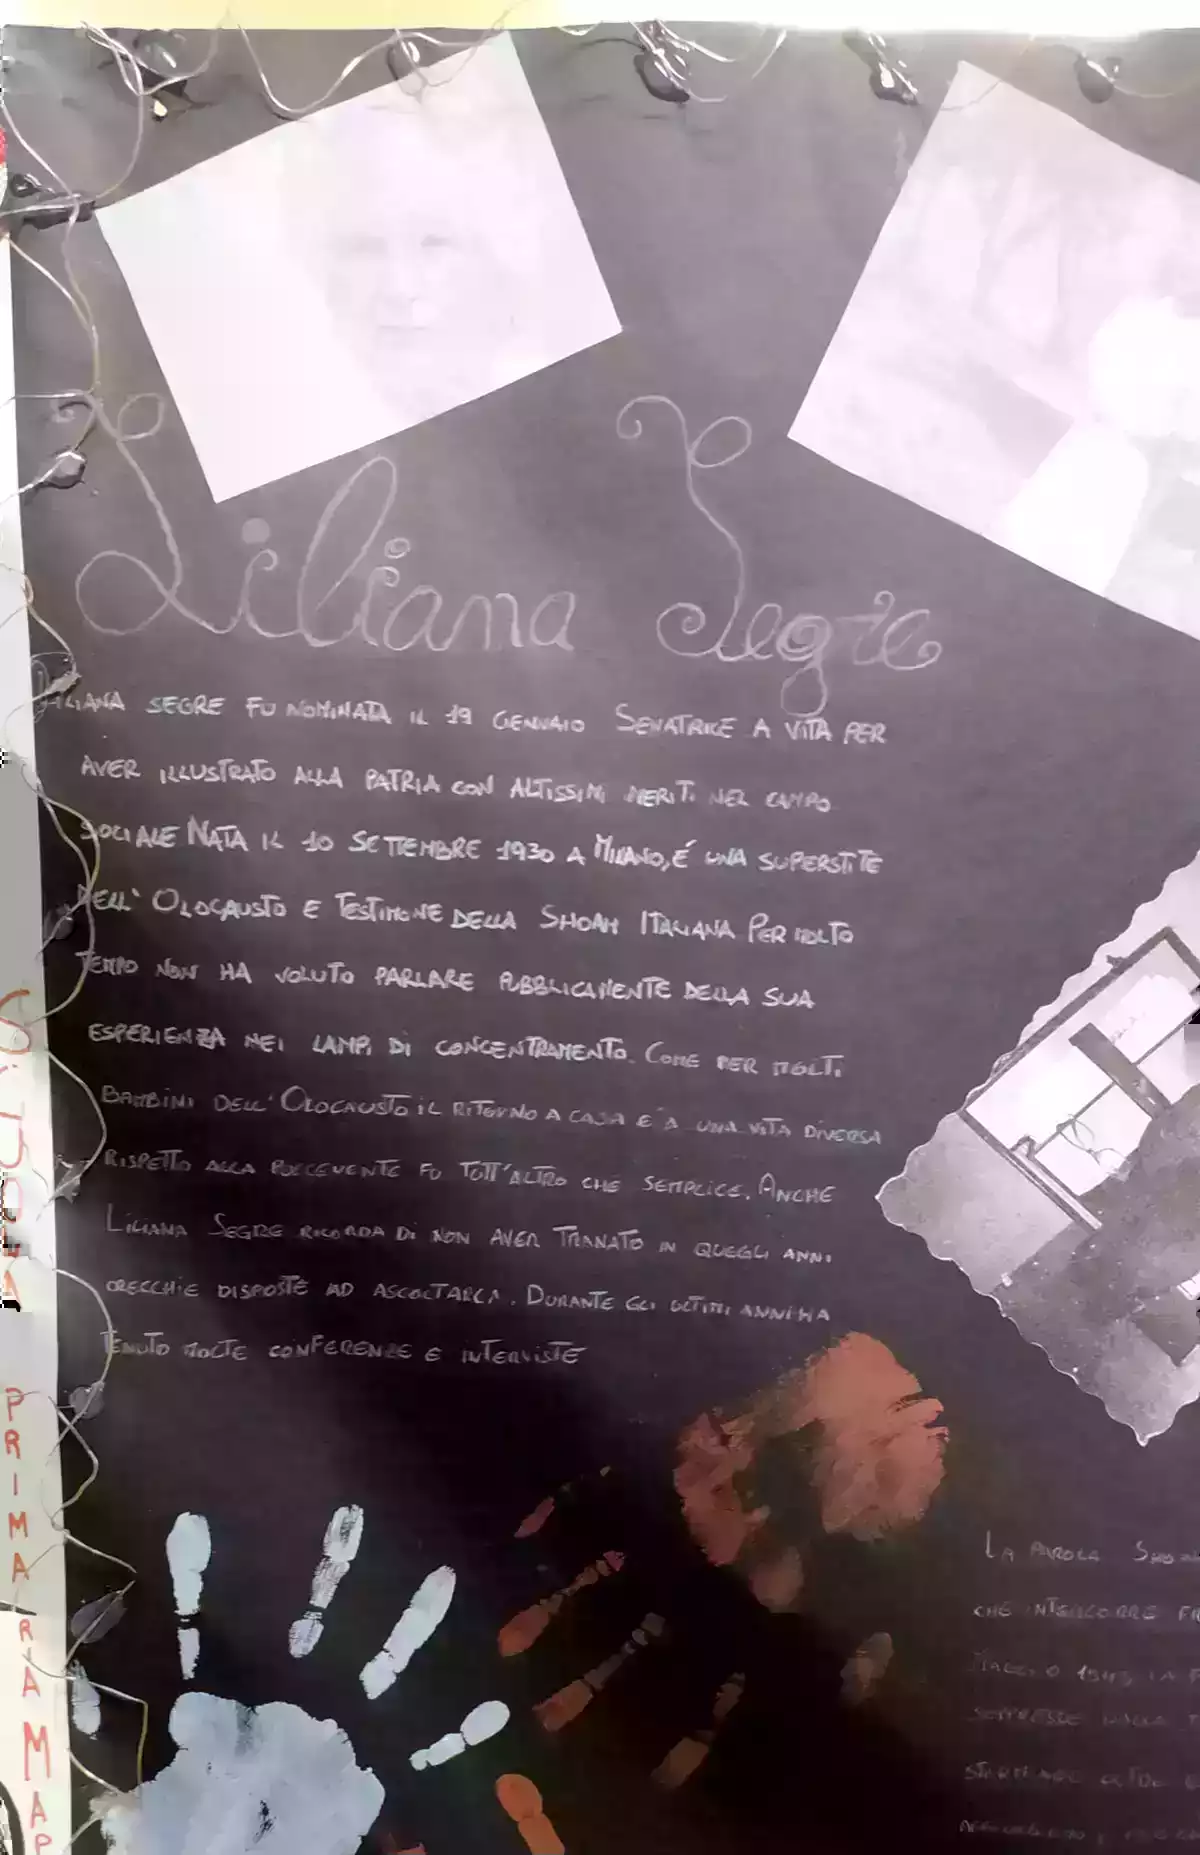 Liliana Segre
LILIANA SEGRE FU NOMINATA IL 19 GENNAIO SENATRICE A VITA PER
AVER ILLUSTRATO ALLA PATRIA CON ALTISSIMI MERITI NEL CAMPO
SOCIALE NATA IL 10 SETTEMBRE 1930 A MILANO, É UNA SUPERSTITE
DELL' OLOCAUSTO E TESTIMONE DELLA SHOAH ITALIANA PER MOLTO
TEMPO NON HA VOLUTO PARLARE PUBBLICAMENTE DELLA SUA
ESPERIENZA NEI CAMPI DI CONCENTRAMENTO. COME PER MOLTI
BAMBINI DELL' OLOCAUSTO IL RITORNO A CASA E A UNA VITA DIVERSA
RISPETTO ALLA FU TUTT'ALTRO CHE SEMPLICE. ANCHE
LILIANA SEGRE RICORDA DI NON AVER TRANATO IN QUEGLI ANNI
ORECCHIE DISPOSTE AD ASCOLTARLA. DURANTE GLI ULTIMI ANNI HA
TENUTO MOLTE CONFERENZE E INTERVISTE
LA PAROLA
CHE INTERCORRE
1945 LA
PRIMA